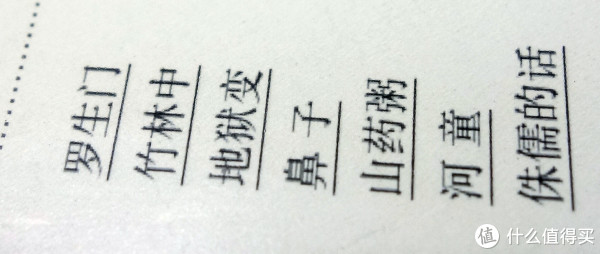 罗生门
竹林中
地狱变
鼻子
山药粥
河童
侏儒的话
值 什么值得买